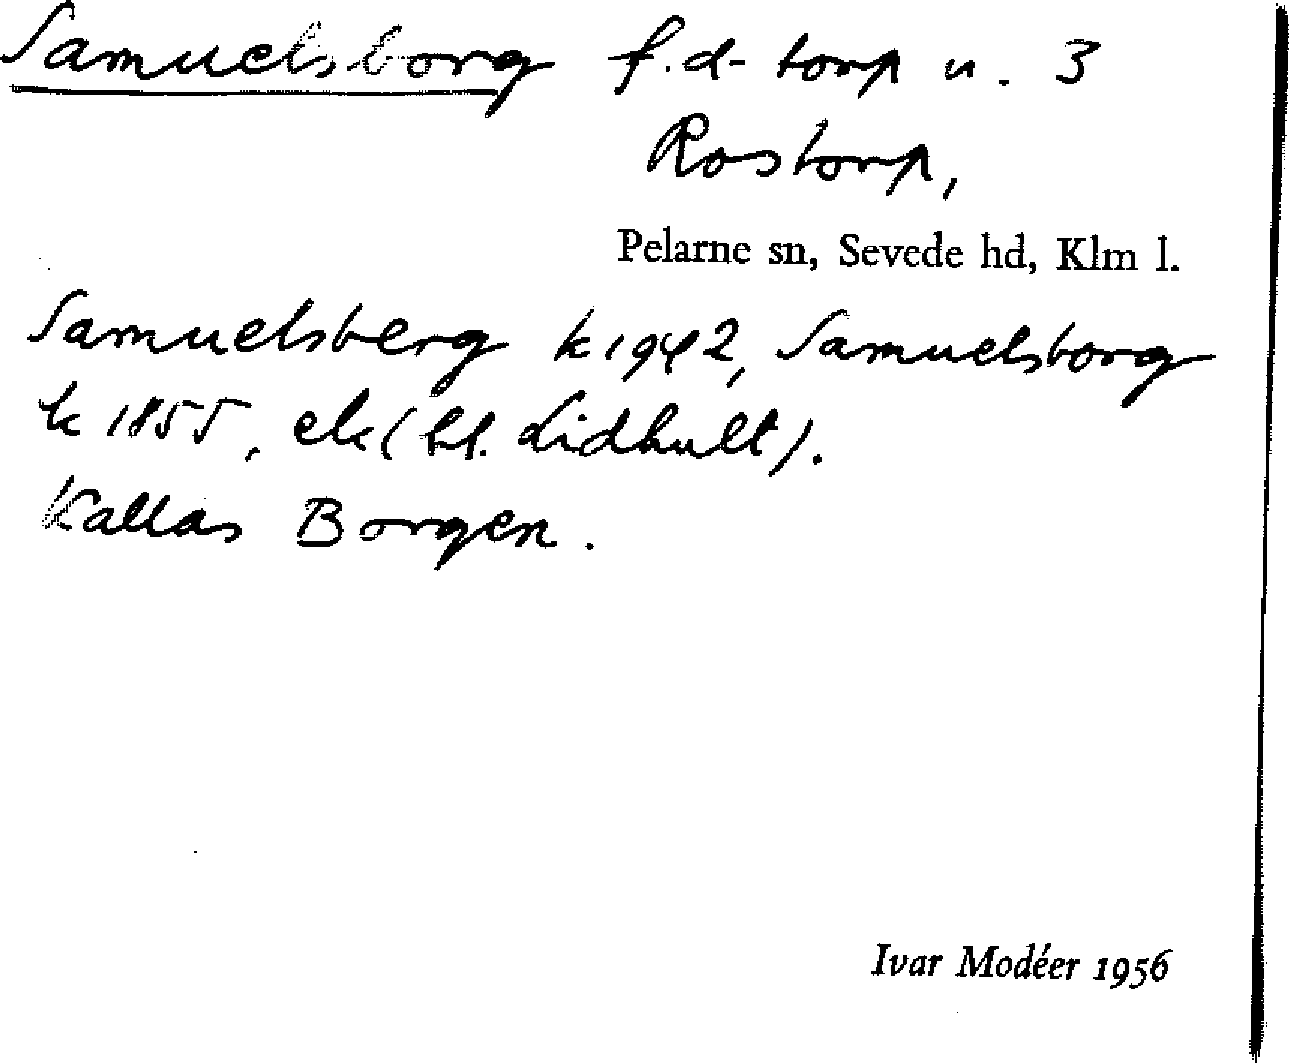 Samuelsborg f.d. torp u. 3
Rostorp,
Pelarne sn, Sevede hd, Klm l.
Samuelsberg k 1942, Samuelsborg
k 1855, ek (bl. Lidhult).
Kallas Borgen.
Ivar Modéer 1956